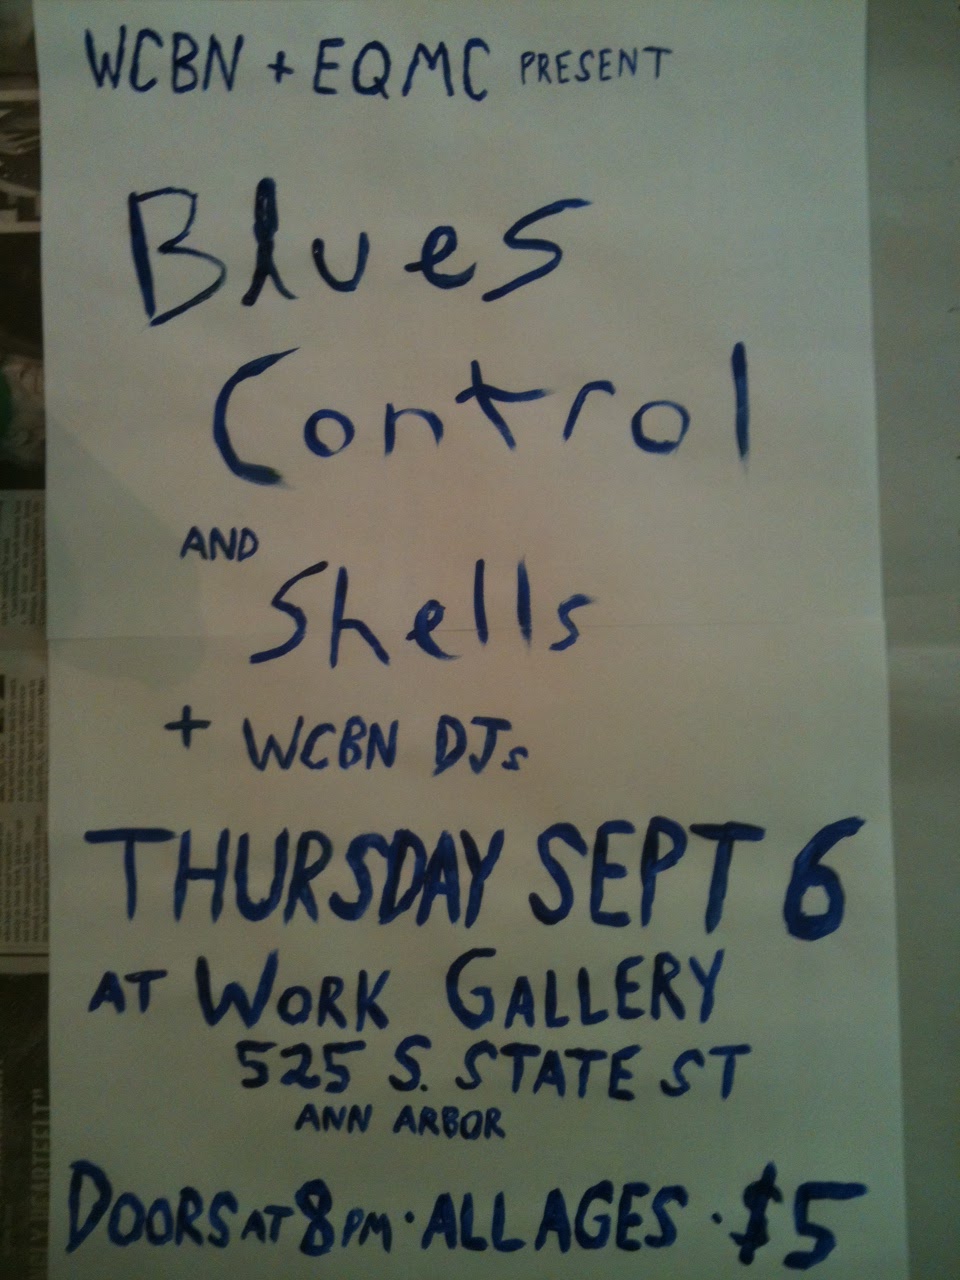 WCBN + EQMC PRESENT
Blues
Control
AND
Shells
+ WCBN DJs
THURSDAY SEPT 6
AT WORK GALLERY
525 S. STATE ST
ANN ARBOR
DOORS AT 8PM · ALL AGES · $5